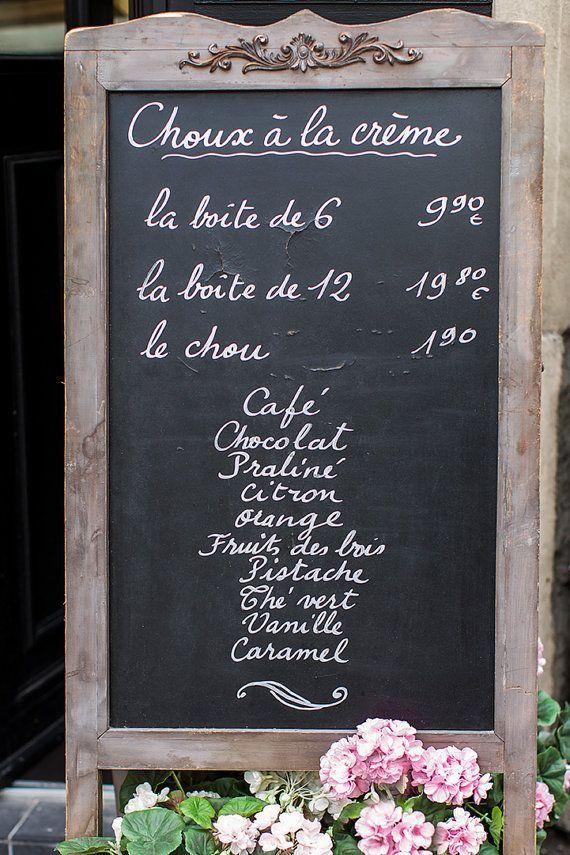 Choux à la crème
la boite de 6 9,90 €
la boîte de 12 19 80 €
le chou 1,90
Café
Chocolat
Praliné
Citron
Orange
Fruits des bois
Pistache
Thé vert
Vanille
Caramel